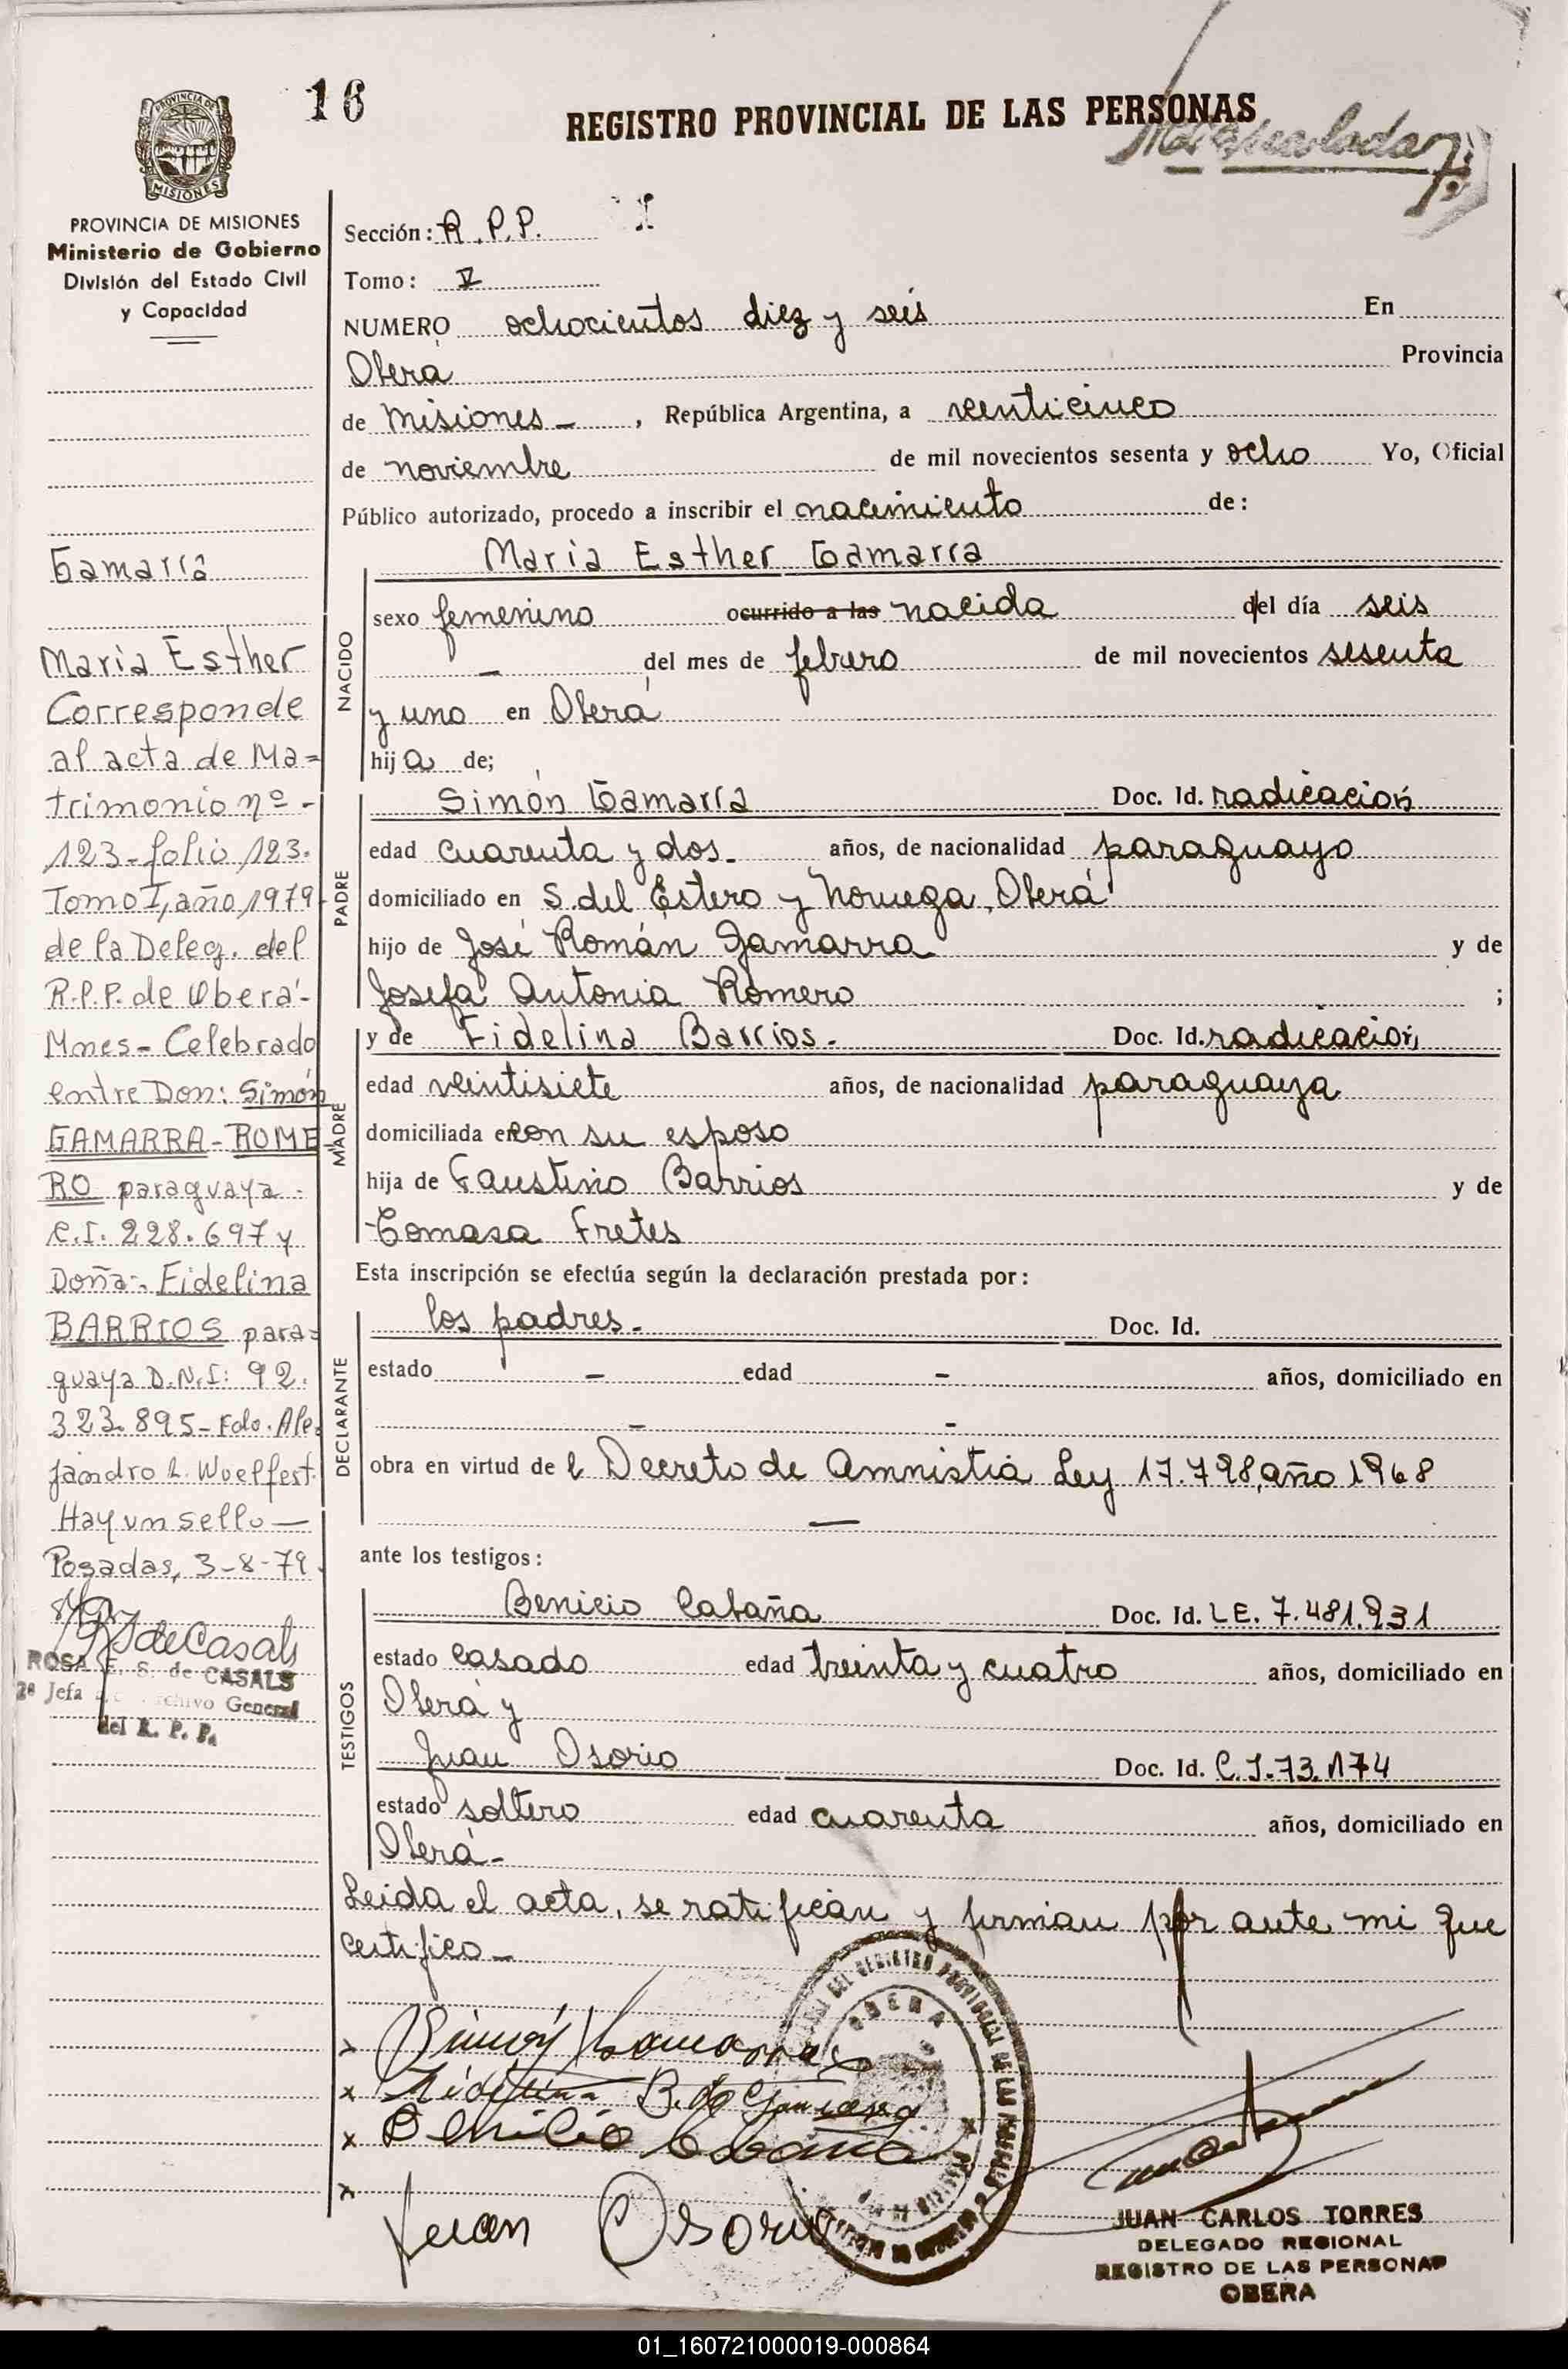 16
REGISTRO PROVINCIAL DE LAS PERSONAS
PROVINCIA DE
MISIONES
PROVINCIA DE MISIONES
Ministerio de Gobierno
División del Estado Civil
y Capacidad
Gamarra
Maria Esther
Corresponde
al acta de Ma=
trimonio nº -
123 - folio 123.
Tomo I, año 1979
de la Deleg. del
R.P.P. de Oberá -
Mnes - Celebrado
entre Don: Simón
GAMARRA - ROME
RO paraguaya -
C.I. 228.697 y
Doña: Fidelina
BARRIOS para=
guaya D.N.I: 92.
323.895 - Fdo. Ale=
jandro L. Woelfert.
Hay un sello —
Posadas, 3-8-79.
de Casals
ROSA E. S. de CASALS
2ª Jefa chivo General
del R. P. P.
Sección: R.P.P.
Tomo: V
NUMERO ochocientos diez y seis En
Oberá Provincia
de Misiones - , República Argentina, a veenticinco
de noviembre de mil novecientos sesenta y ocho Yo, Oficial
Público autorizado, procedo a inscribir el nacimiento de:
Maria Esther Gamarra
NACIDO
sexo femenino ocurrido a las nacida del día seis
- del mes de febrero de mil novecientos sesenta
y uno en Oberá
hija de;
PADRE
Simón Gamarra Doc. Id. radicación
edad cuarenta y dos - años, de nacionalidad paraguayo
domiciliado en S. del Estero y Noruega, Oberá
hijo de José Román Gamarra y de
Josefa Antonia Romero ;
MADRE
y de Fidelina Barrios - Doc. Id. radicación
edad veintisiete años, de nacionalidad paraguaya
domiciliada en con su esposo
hija de Faustino Barrios y de
Tomasa Fretes
Esta inscripción se efectúa según la declaración prestada por:
DECLARANTE
los padres - Doc. Id.
estado - edad - años, domiciliado en
- -
obra en virtud del Decreto de Amnistia Ley 17.798, año 1968
—
ante los testigos:
TESTIGOS
Benicio Cabaña Doc. Id. L.E. 7.481.931
estado casado edad treinta y cuatro años, domiciliado en
Oberá y
Juan Osorio Doc. Id. C.I. 73.174
estado soltero edad cuarenta años, domiciliado en
Oberá -
Leida el acta, se ratifican y firman por ante mi que
certifico -
x Simón Gamarra
x Fidelina B. de Gamarra
x Benicio Cabaña
x
Juan Osorio
OBERA
JUAN CARLOS TORRES
DELEGADO REGIONAL
REGISTRO DE LAS PERSONAS
OBERA
01_160721000019-000864